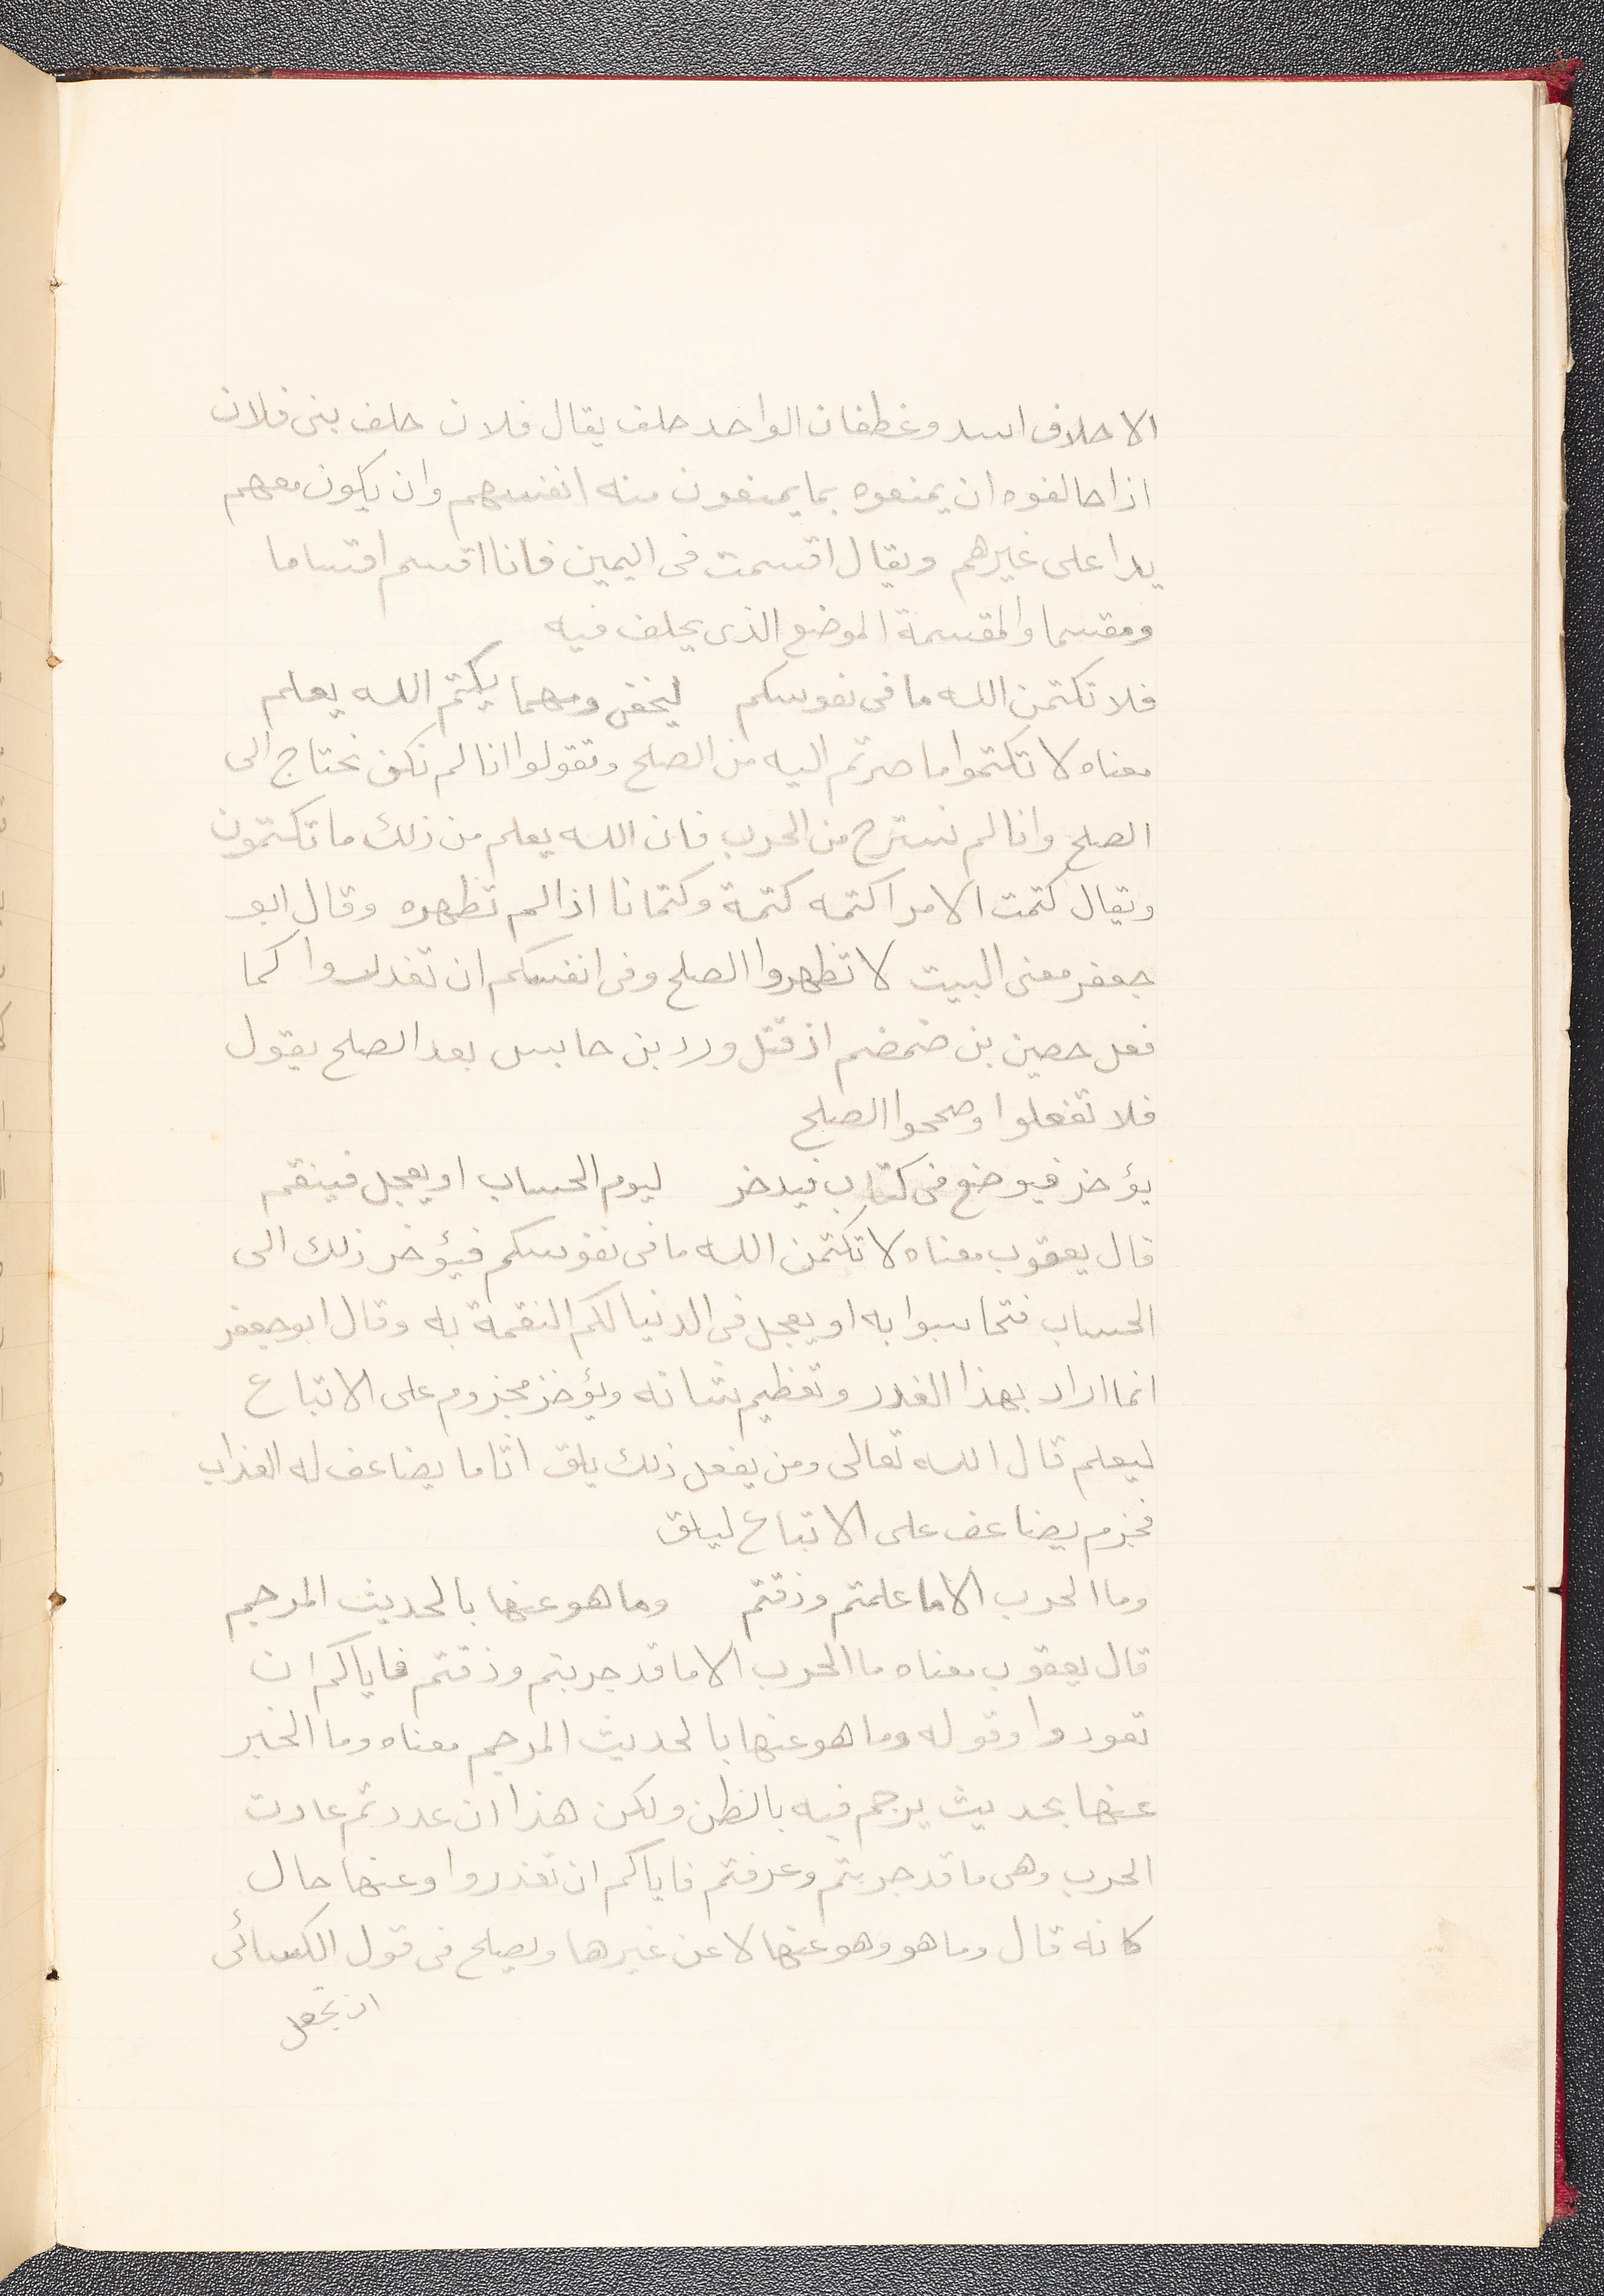 الاحلاف اسد وغطفان الواحد حلف يقال فلان حلف بنى فلان
اذا حالفوه ان يمنعوه بما يمنعون منه انفسهم وان يكون معهم
يدا على غيرهم ويقال اقسمت فى اليمين فانا اقسم اقساما
ومقسما والمقسمة الموضع الذى يحلف فيه
فلا تكتمن الله ما فى نفوسكم ليخفى ومهما يكتم الله يعلم
معناه لا تكتموا ما صرتم اليه من الصلح وتقولوا انا لم نكن نحتاج الى
الصلح وانا لم نسترح من الحرب فان الله يعلم من ذلك ما تكتمون
ويقال كتمت الامر اكتمه كتمة وكتمانا اذا لم تظهره وقال ابو
جعفر معنى البيت لا تظهروا الصلح وفى انفسكم ان تغدروا كما
فعل حصين بن ضمضم اذ قتل ورد بن حابس بعد الصلح يقول
فلا تفعلوا وصححوا الصلح
يؤخر فيوضع فى كتاب فيدخر ليوم الحساب او يعجل فينقم
قال يعقوب معناه لا تكتمن الله ما فى نفوسكم فيؤخر ذلك الى
الحساب فتحاسبوا به او يعجل فى الدنيا لكم النقمة به وقال ابو جعفر
انما اراد بهذا الغدر وتعظيم شانه ويؤخر مجزوم على الاتباع
ليعلم قال الله تعالى ومن يفعل ذلك يلق اثاما يضاعف له العذاب
فجزم يضاعف على الاتباع ليلق
وما الحرب الا ما علمتم وذقتم وما هو عنها بالحديث المرجم
قال يعقوب معناه ما الحرب الا ما قد جربتم وذقتم فاياكم ان
تعودوا وقوله وما هو عنها بالحديث المرجم معناه وما الخبر
عنها بحديث يرجم فيه بالظن ولكن هذا ان عددتم عادت
الحرب وهى ما قد جربتم وعرفتم فاياكم ان تغدروا وعنها حال
كانه قال وما هو وهو عنها لا عن غيرها ويصلح فى قول الكسائى
ان تجعل